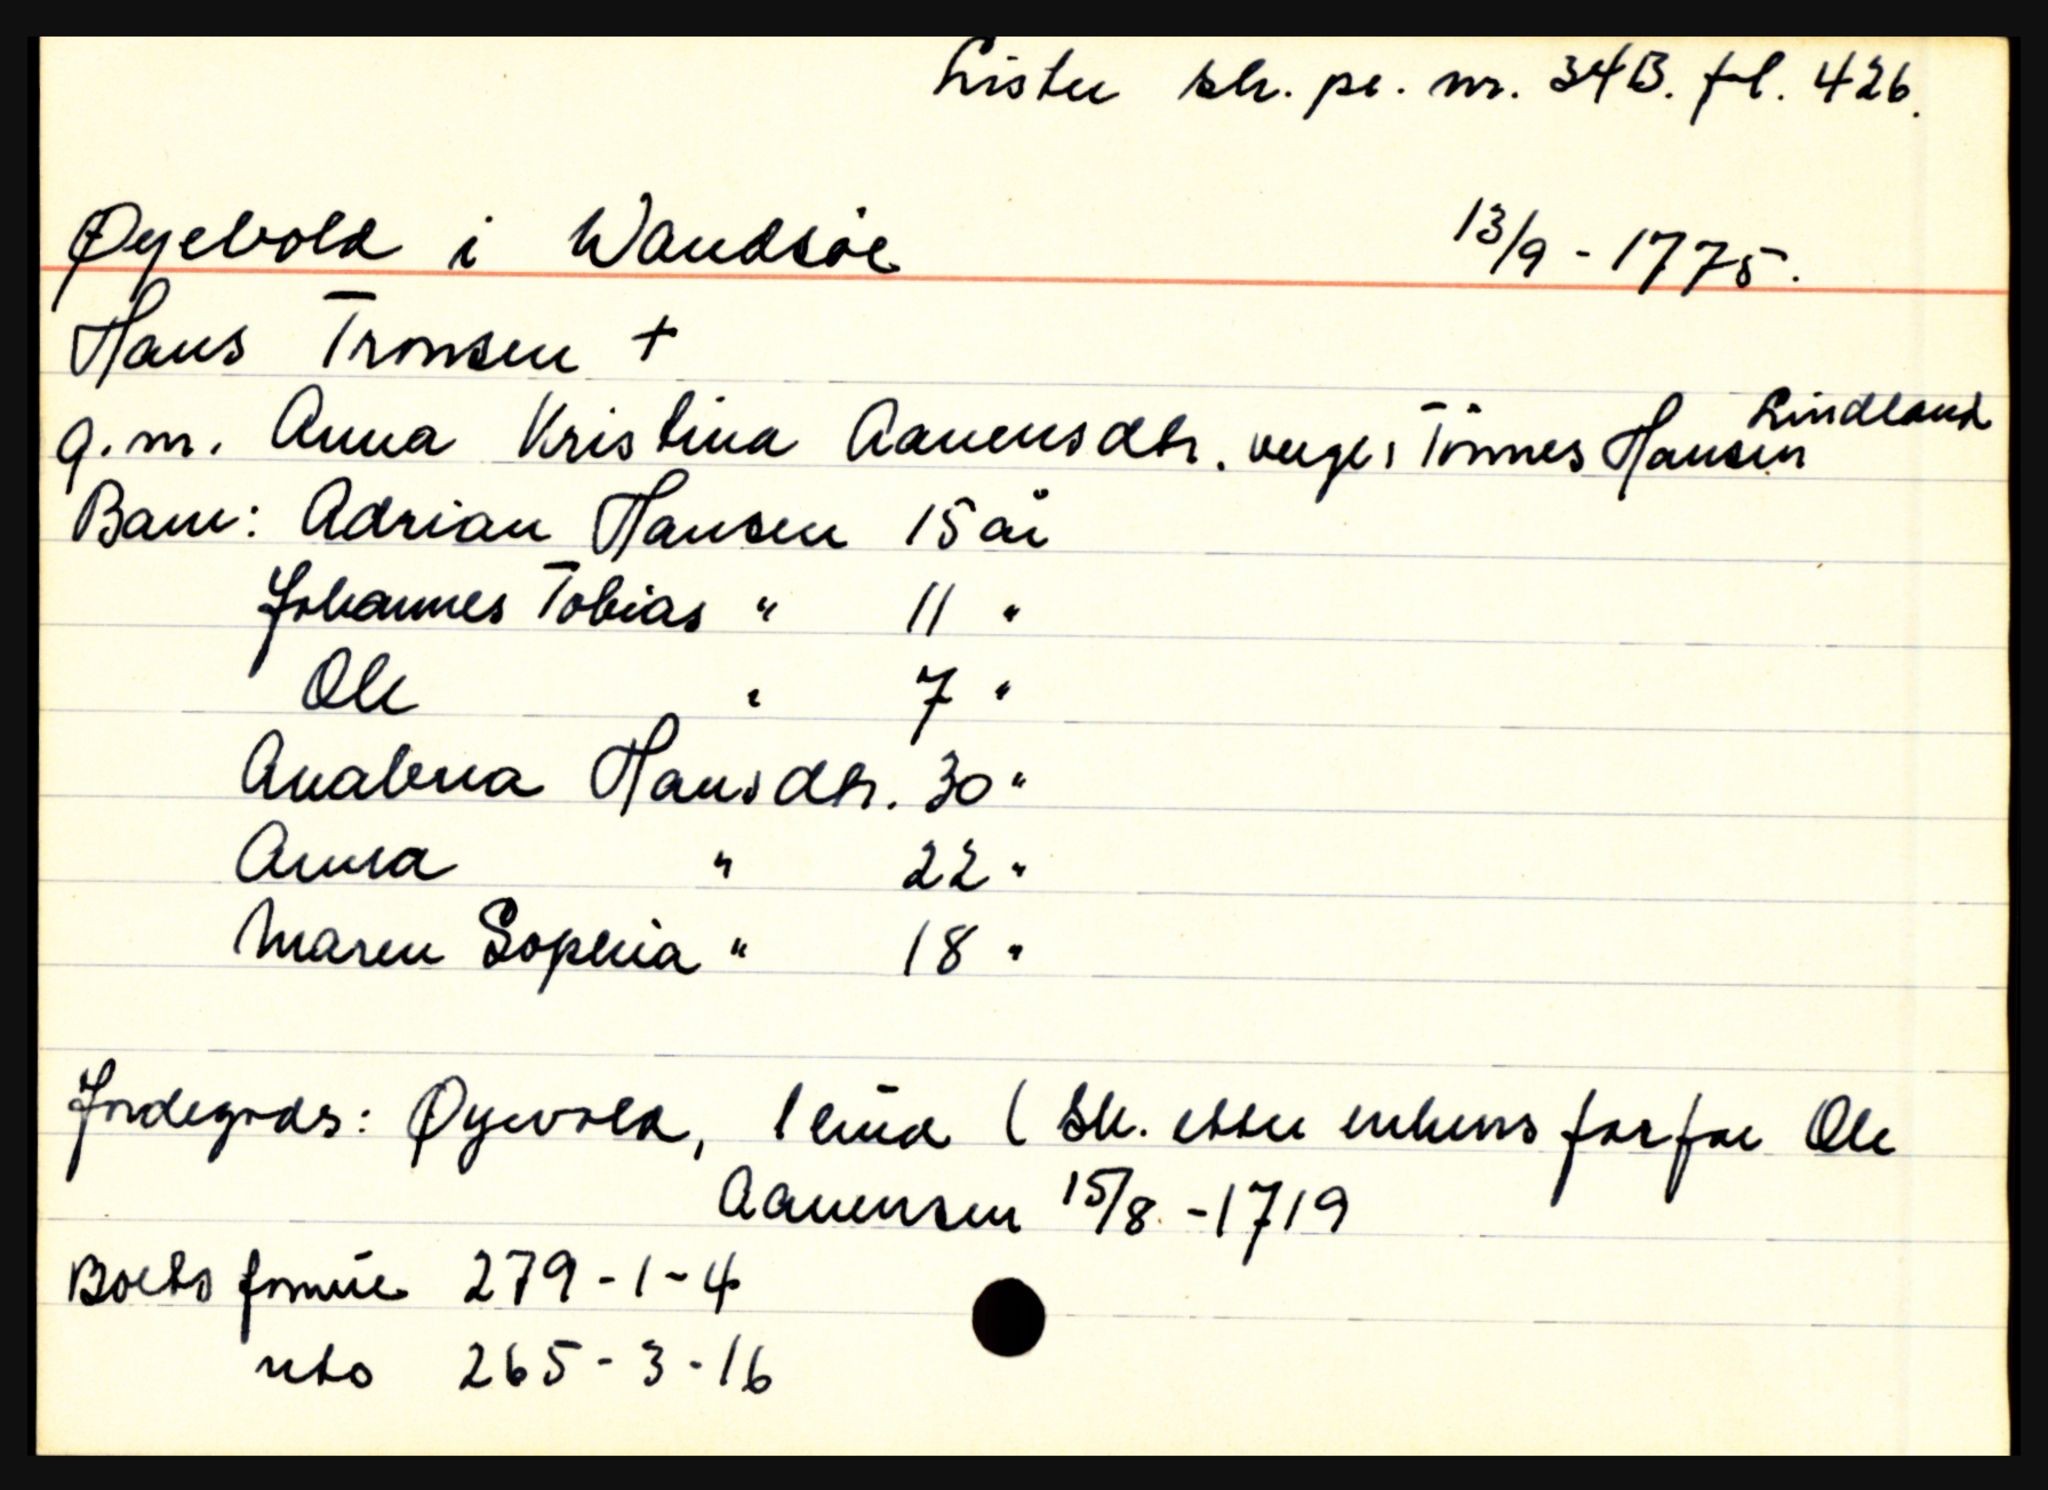 Lister sk. pr. nr. 34B. fol. 426.
Øyebold i Wandsøe 13/9 - 1775.
Hans Tronsen +
g.m. Anna Kristina Aanensdtr. verge: Tønnes Hansen Lindland
Barn: Adrian Hansen 15 år
Johannes Tobias " 11 "
Ole " 7 "
Anabena Hansdtr. 30 "
Anna " 22 "
Maren Sophia " 18 "
Jordegods: Øyevold, 1 hud ( Sk. etter enkens farfar Ole
Aanensen 15/8 - 1719
Boets formue 279-1-4
nto 265-3-16